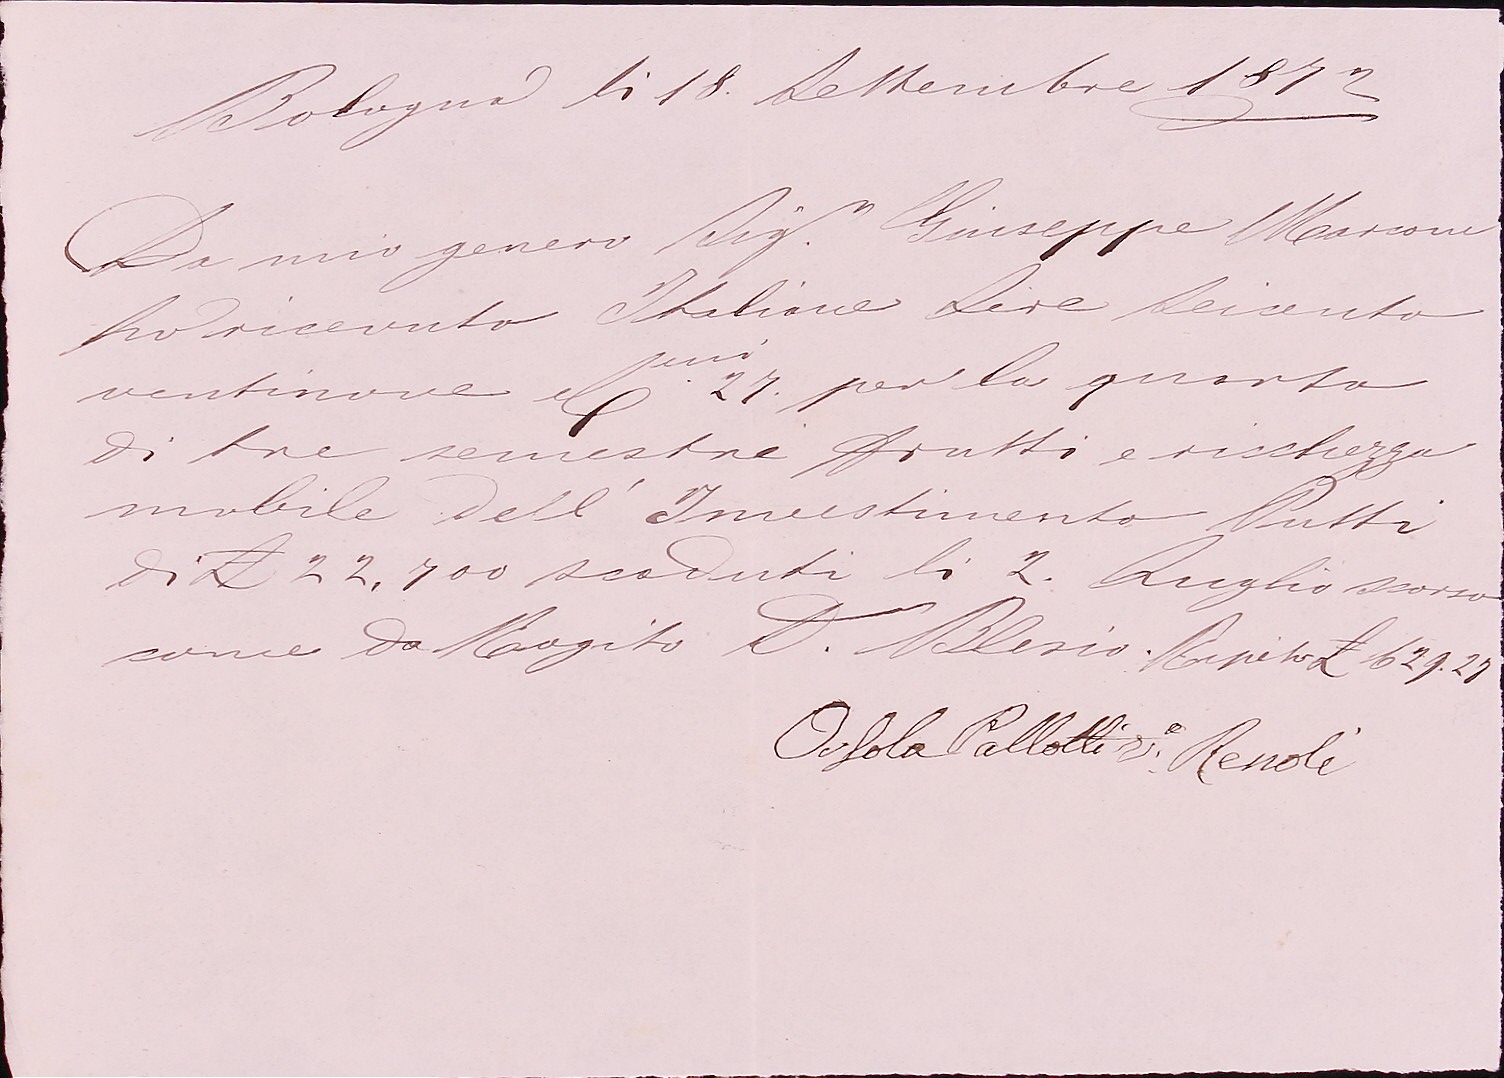 Bologna li 18. Settembre 1872
Da mio genero Sig.r Giuseppe Marconi
ho ricevuto Italiane Lire Seicento
ventinove e 27. per la quarta
di tre semestre frutti e ricchezza
mobile dell' Investimento Putti
di £ 22,700 scaduti li 2. Luglio scorso
come da Rogito D. Blesio. Ripeto £ 629.27
Orsola Pallotti Renoli